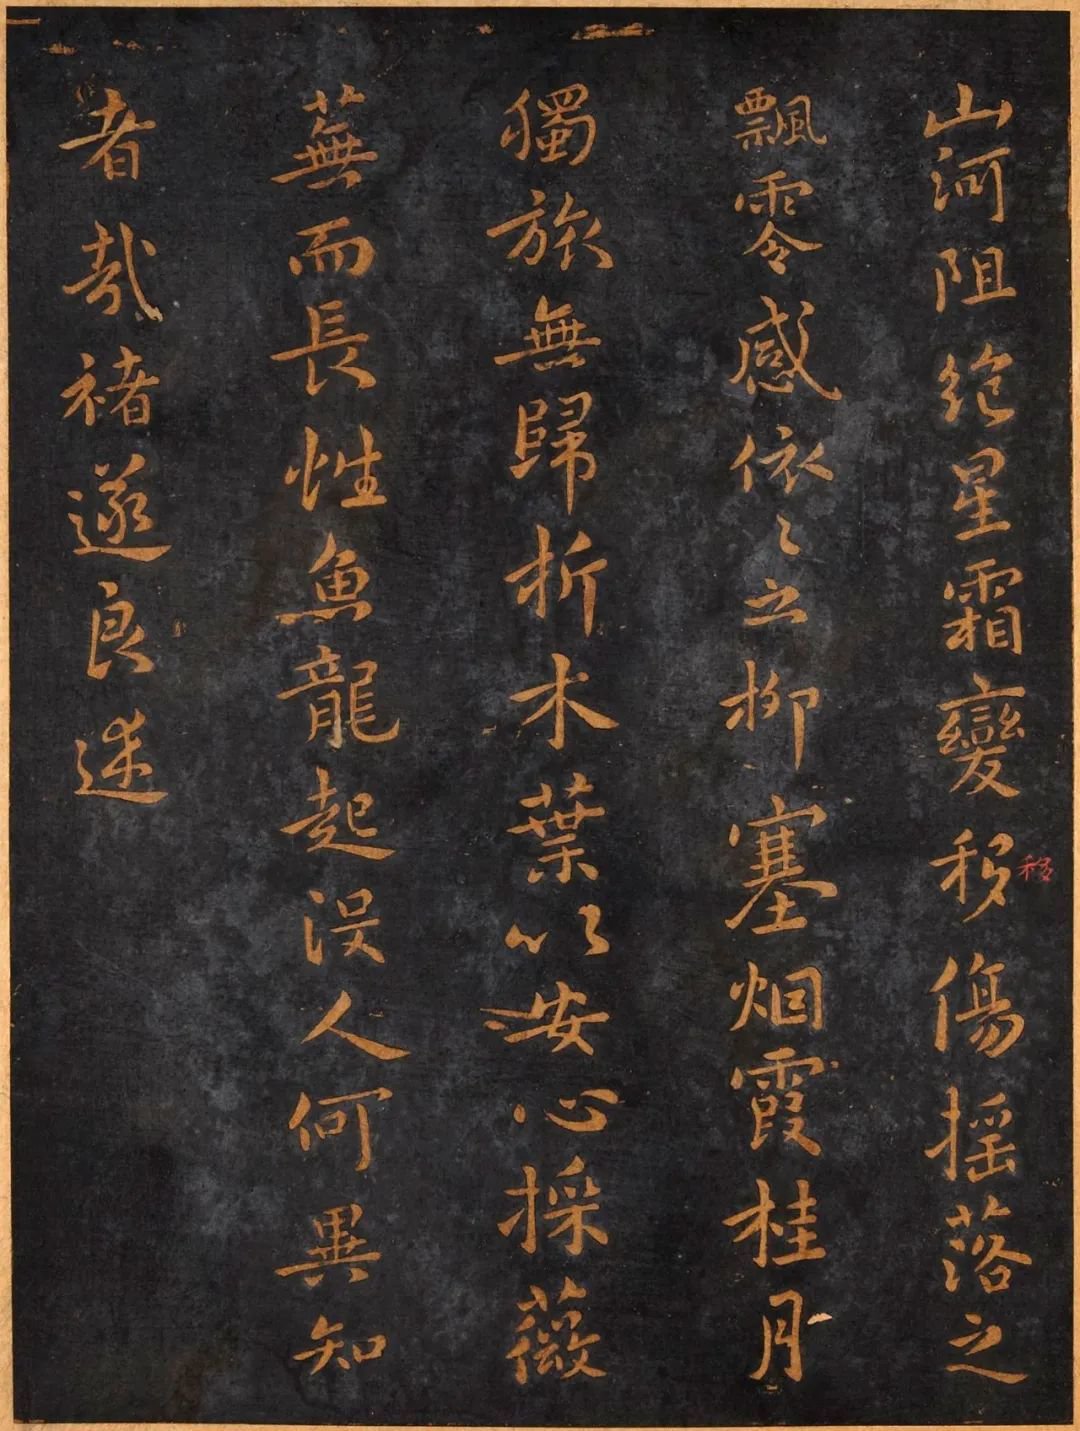 山河阻絶星霜變移傷摇落之
移
飄零感依々之柳塞烟霞桂月
獨旅無歸折木葉以安心採薇
蕪而長性魚龍起没人何異知
者哉褚遂良述